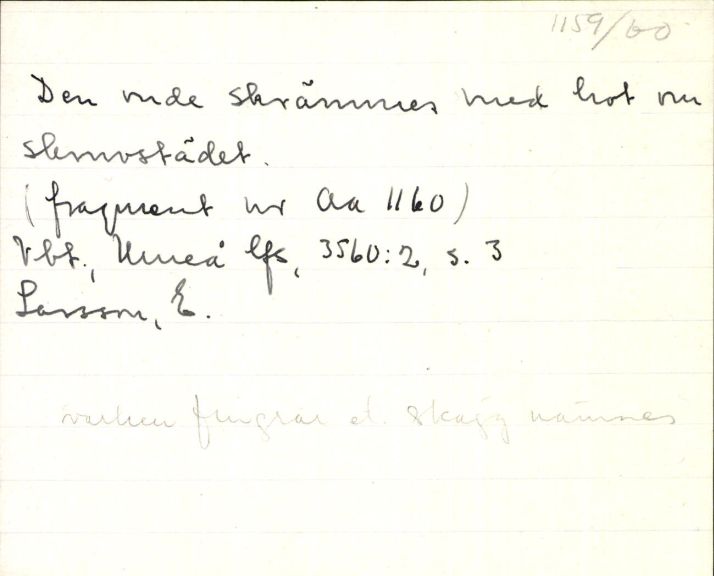 1159/60
Den onde skrämmes med hot om
skruvstädet.
(fragment nr Aa 1160)
Vbt., Umeå lfs, 3560:2, s. 3
Larsson, E.
varken fingrar el. skägg nämnes